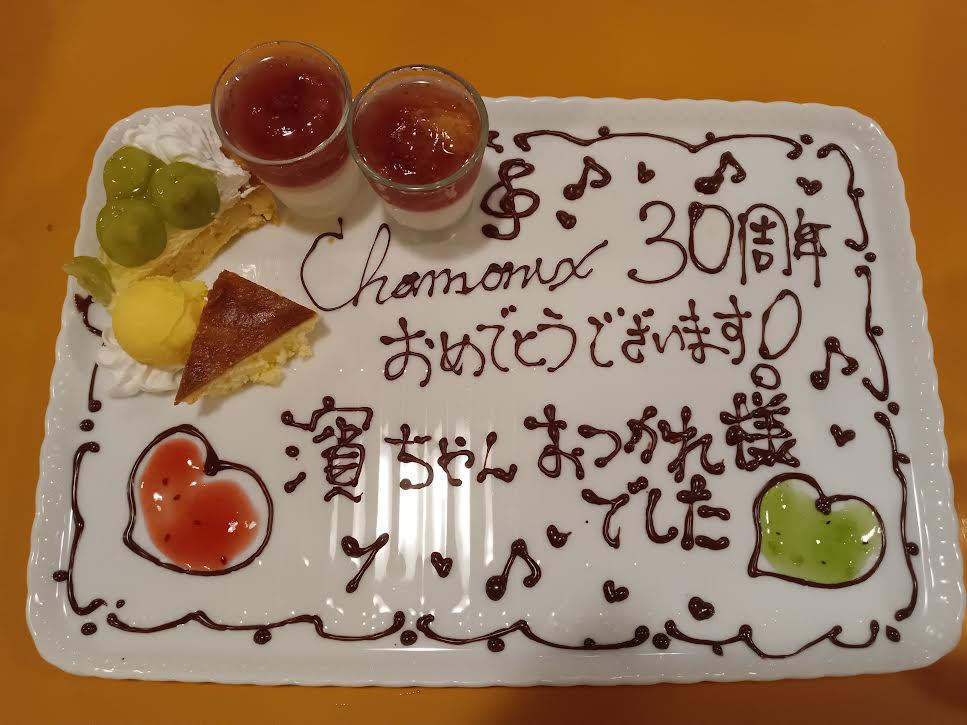 Chamonix 30周年
おめでとうございます!
濱ちゃん おつかれ様
でした